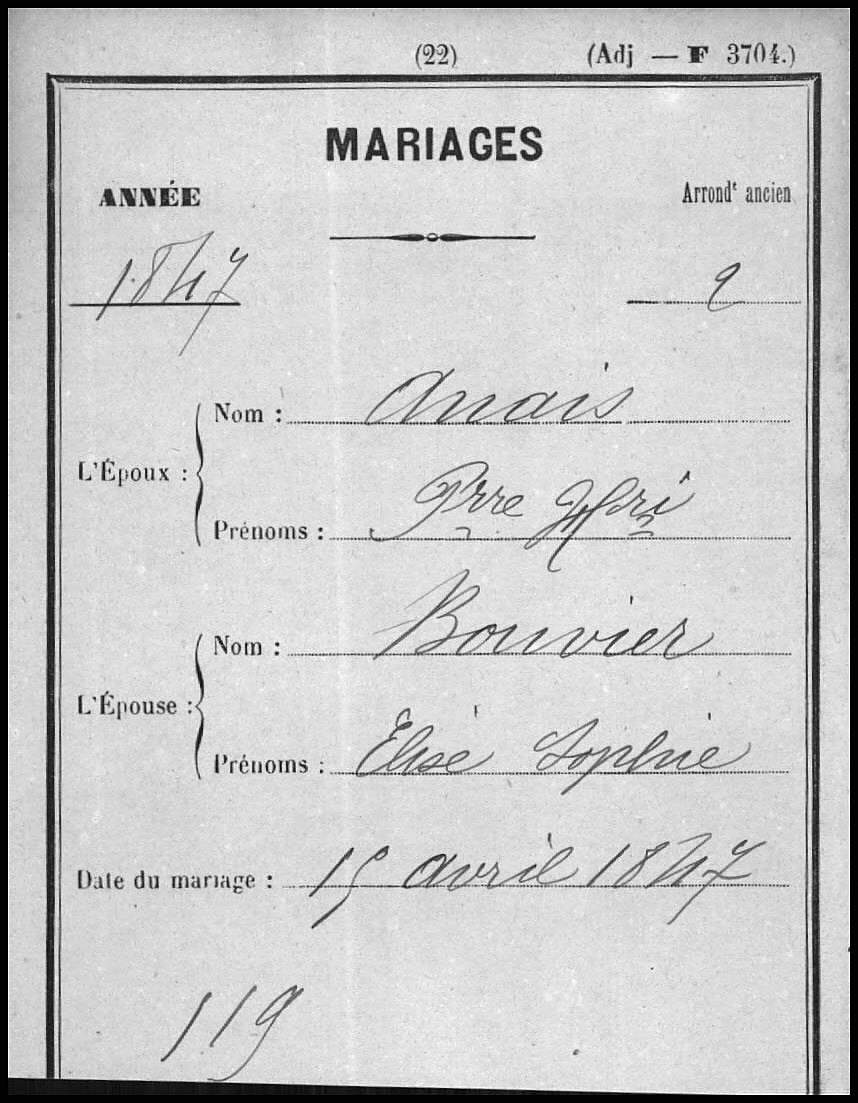 (22) (Adj — F 3704.)
MARIAGES
ANNÉE Arrondt ancien
1847 2
L'Époux : Nom : Anais
Prénoms : Prre Hri
L'Épouse : Nom : Bouvier
Prénoms : Élise Sophie
Date du mariage : 15 avril 1847
119